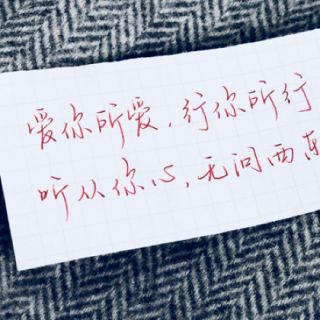 爱你所爱，行你所行
听从你心，无问西东